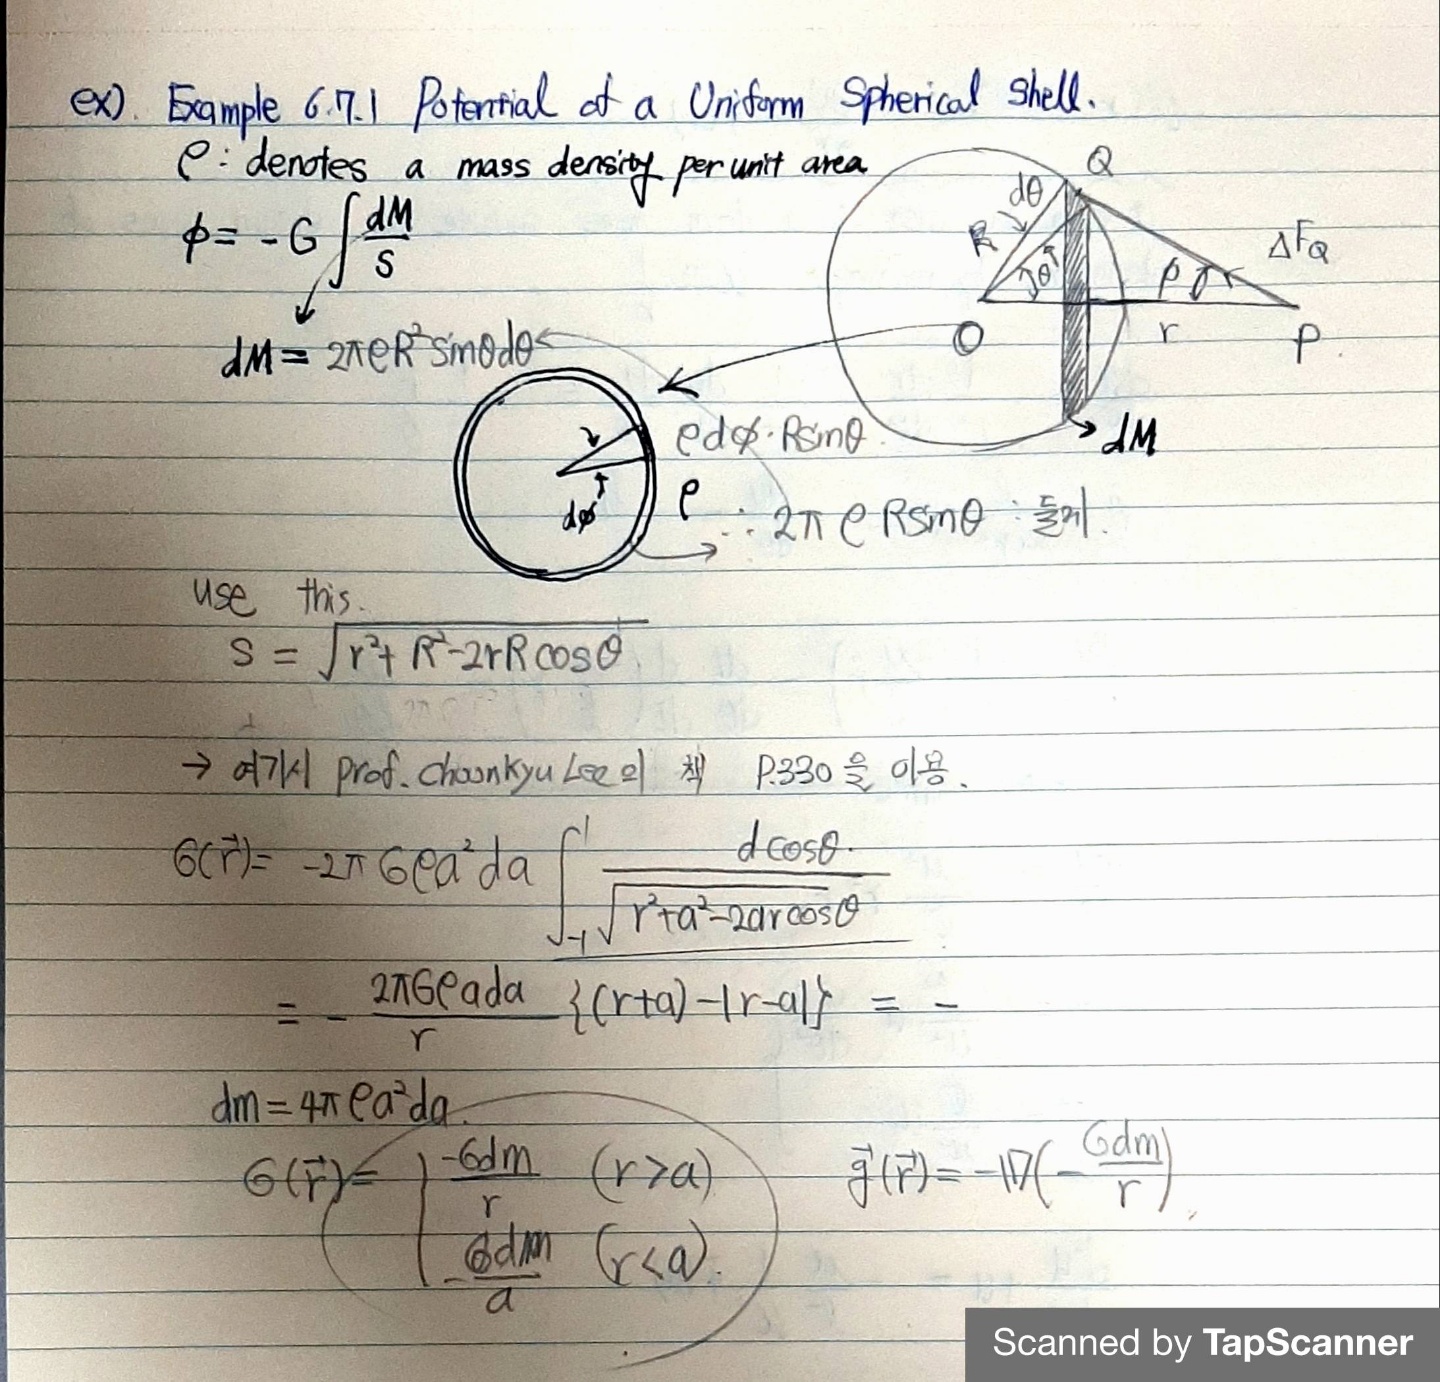 ex). Example 6.7.1 Potential of a Uniform Spherical Shell.
ρ : denotes a mass density per unit area
ϕ = -G ∫ dM/s
dM = 2πρR²sinθdθ
Q
dθ
R
θ
ΔF_Q
O
r
P
dM
ρdϕ·Rsinθ
dϕ
ρ
∴ 2πρRsinθ : 둘레.
use this.
s = √(r²+R²-2rRcosθ)
→ 여기서 prof. Choonkyu Lee의 책 P.330을 이용.
G(r⃗)= -2πGρa²da ∫₋₁¹ dcosθ/√(r²+a²-2arcosθ)
= - 2πGρada/r {(r+a)-|r-a|} = -
dm = 4πρa²da.
G(r⃗)= -Gdm/r (r>a) g⃗(r⃗)= -∇(-Gdm/r)
-Gdm/a (r<a).
Scanned by TapScanner